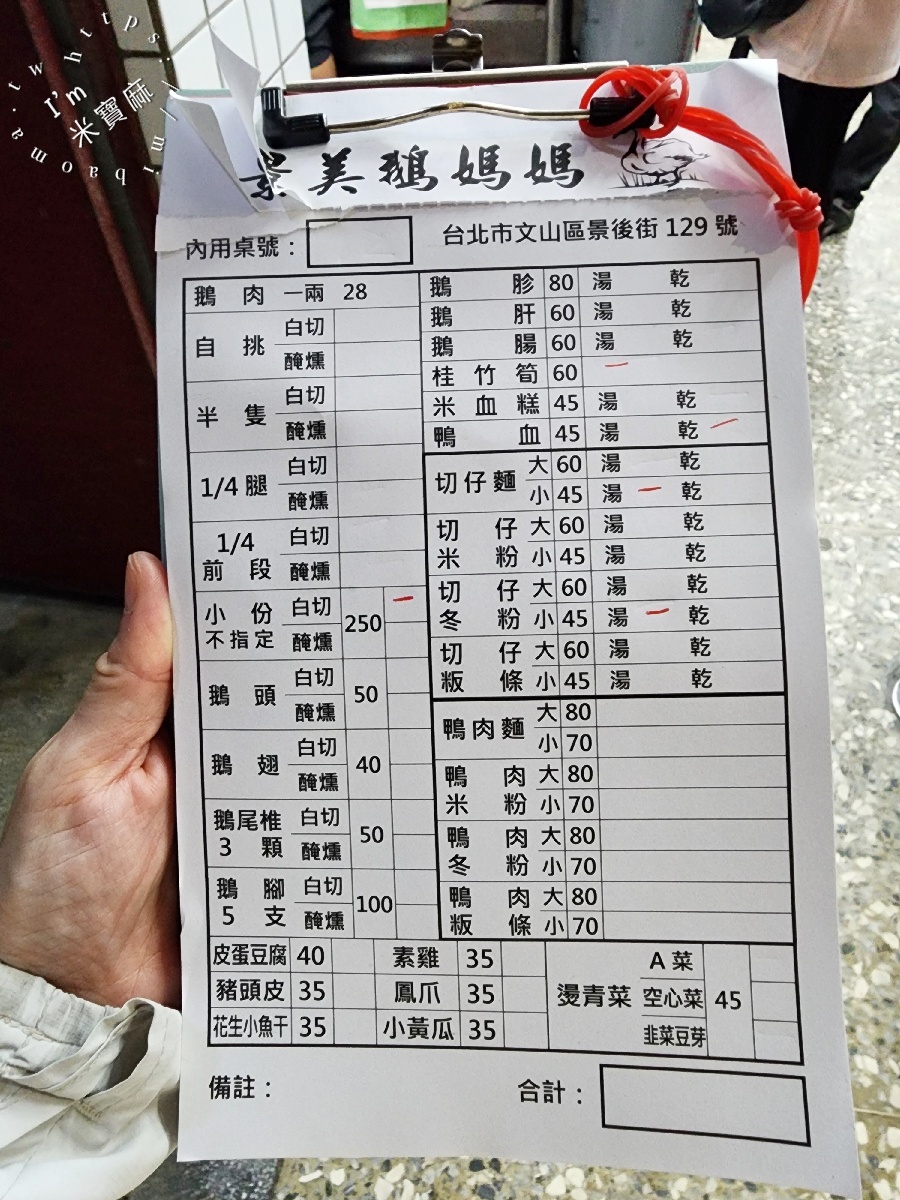 I'm
米寶麻
景美鵝媽媽
內用桌號：
台北市文山區景後街 129 號
鵝肉 一兩 28
自挑 白切
醃燻
半隻 白切
醃燻
1/4 腿 白切
醃燻
1/4 前段 白切
醃燻
小份 不指定 白切 250
醃燻
鵝頭 白切 50
醃燻
鵝翅 白切 40
醃燻
鵝尾椎 3 顆 白切 50
醃燻
鵝腳 5 支 白切 100
醃燻
鵝胗 80 湯 乾
鵝肝 60 湯 乾
鵝腸 60 湯 乾
桂竹筍 60
米血糕 45 湯 乾
鴨血 45 湯 乾
切仔麵 大 60 湯 乾
小 45 湯 乾
切仔 大 60 湯 乾
米粉 小 45 湯 乾
切仔 大 60 湯 乾
冬粉 小 45 湯 乾
切仔 大 60 湯 乾
粄條 小 45 湯 乾
鴨肉麵 大 80
小 70
鴨肉 大 80
米粉 小 70
鴨肉 大 80
冬粉 小 70
鴨肉 大 80
粄條 小 70
皮蛋豆腐 40 素雞 35
豬頭皮 35 鳳爪 35
花生小魚干 35 小黃瓜 35
燙青菜 A 菜 45
空心菜
韭菜豆芽
備註：
合計：